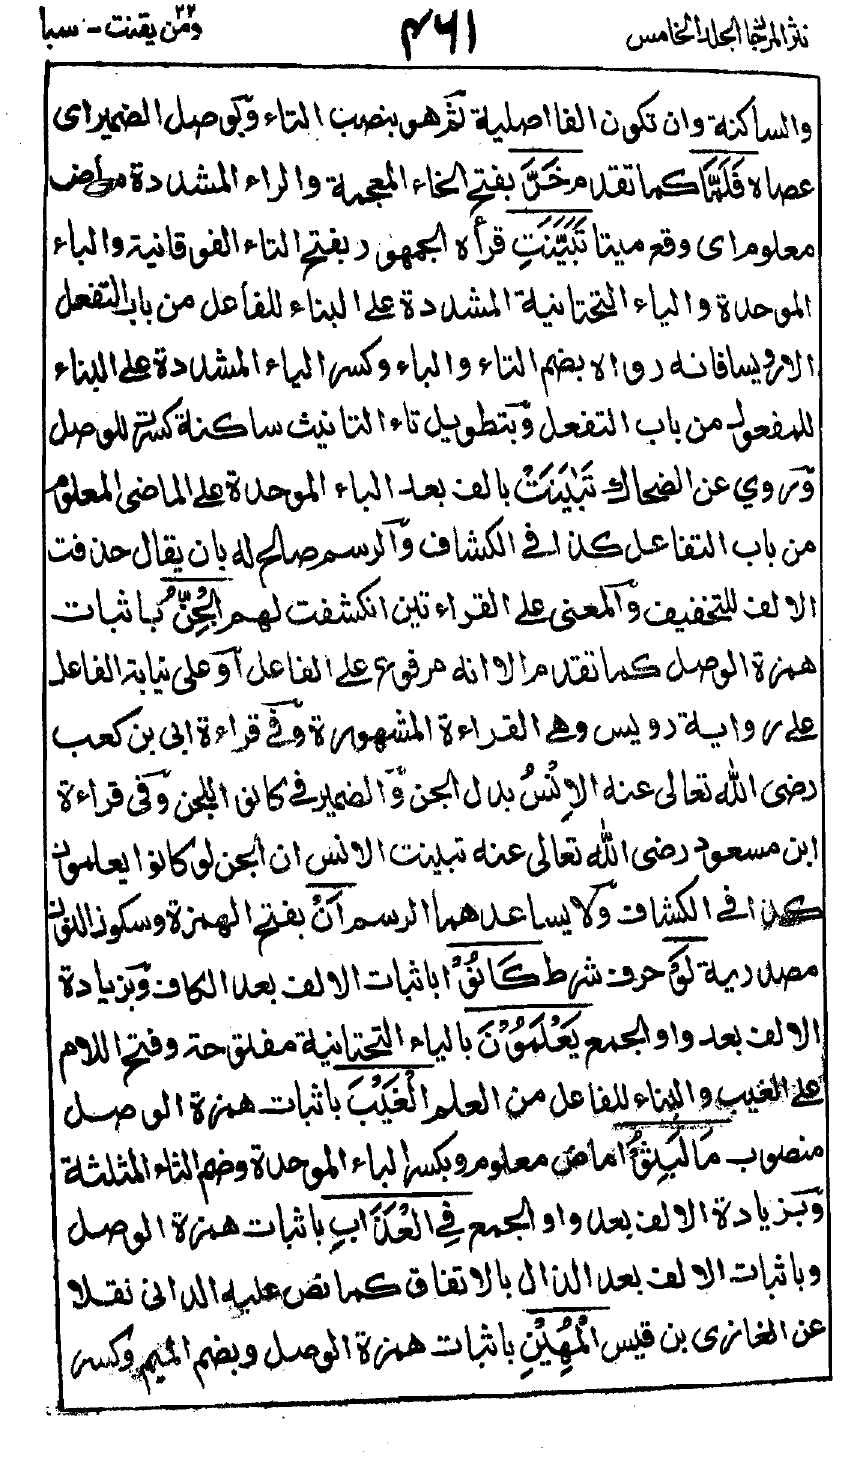 نثر المرجان الجلد الخامس ۴۶۱ ومن يقنت ۲۲ - سبا
والساكنة وان تكون الفا اصلية ثم هو بنصب التاء وبوصل الضمير اى
عصاه فَلَمَّا كما تقدم خَرَّ بفتح الخاء المعجمة والراء المشددة ماض
معلوم اى وقع ميتا تَبَيَّنَتِ قرأه الجمهور بفتح التاء الفوقانية والباء
الموحدة والياء التحتانية المشددة على البناء للفاعل من باب التفعل
الا رويسا فانه رواه بضم التاء والباء وكسر الياء المشددة على البناء
للمفعول من باب التفعل وبتطويل تاء التانيث ساكنة كسرت للوصل
وروي عن الضحاك تَبَايَنَتْ بالف بعد الباء الموحدة على الماضى المعلوم
من باب التفاعل كذا فى الكشاف والرسم صالح له بان يقال حذفت
الالف للتخفيف والمعنى على القراءتين انكشفت لهم الْجِنُّ باثبات
همزة الوصل كما تقدم الا انه مرفوع على الفاعل او على نيابة الفاعل
على رواية رويس وهى القراءة المشهورة وفى قراءة ابى بن كعب
رضى الله تعالى عنه الاِنْسُ بدل الجن والضمير فى كانوا للجن وفى قراءة
ابن مسعود رضى الله تعالى عنه تبينت الانس ان الجن لو كانوا يعلمون
كذا فى الكشاف ولا يساعدهما الرسم اَنْ بفتح الهمزة وسكون النون
مصدرية لَوْ حرف شرط كَانُوْا باثبات الالف بعد الكاف وبزيادة
الالف بعد واو الجمع يَعْلَمُوْنَ بالياء التحتانية مفتوحة وفتح اللام
على الغيب والبناء للفاعل من العلم الْغَيْبَ باثبات همزة الوصل
منصوب مَا لَبِثُوْا ماض معلوم وبكسر الباء الموحدة وضم الثاء المثلثة
وبزيادة الالف بعد واو الجمع فِي الْعَذَابِ باثبات همزة الوصل
وباثبات الالف بعد الذال بالاتفاق كما نص عليه الدانى نقلا
عن الغازى بن قيس الْمُهِيْنِ باثبات همزة الوصل وبضم الميم وكسر